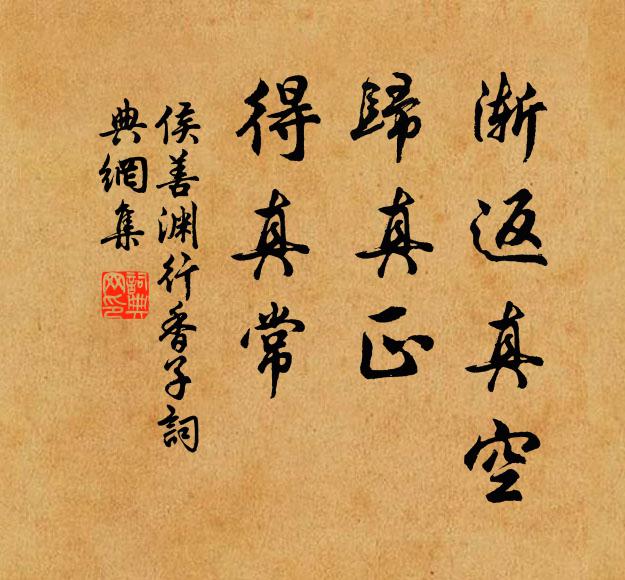 漸返真空
歸真正
得真常
侯善渊行香子詞
典網集
詞典网印